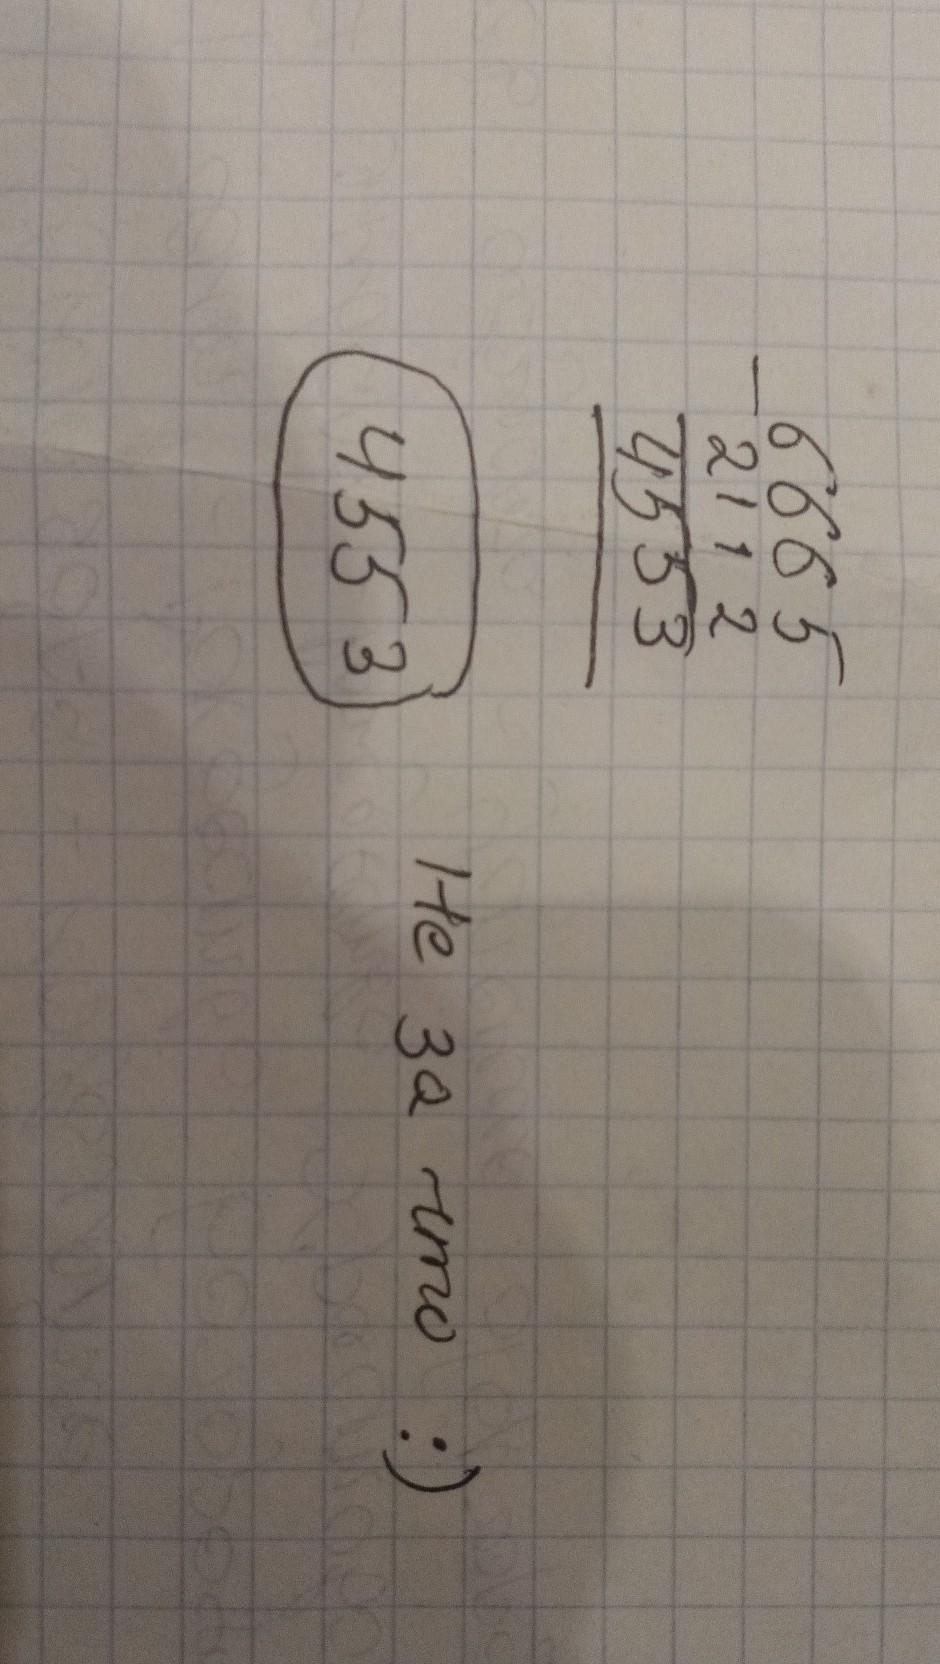 - 6665
2112
4553
4553
Не за что :)